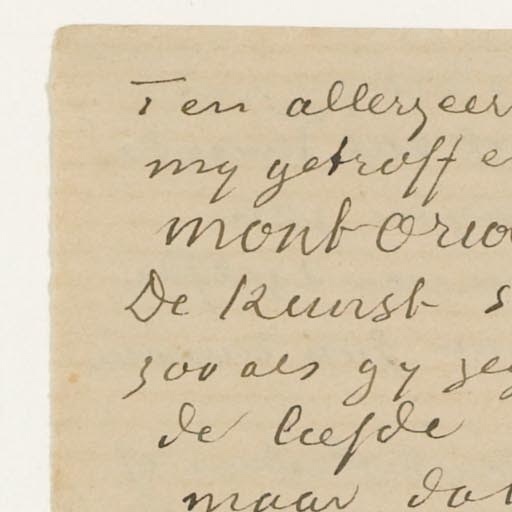 Ten allerzeer
my getroff e
mont-Orio
De Kunst s
zooals gy zeg
de liefde
maar dat